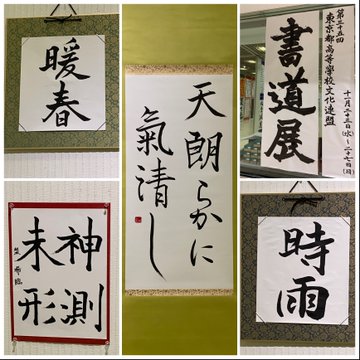 暖春
天朗らかに
氣清し
第三十五回
東京都高等學校文化連盟
書道展
十一月二十三日(水)〜二十七日(日)
神測
未形
時雨